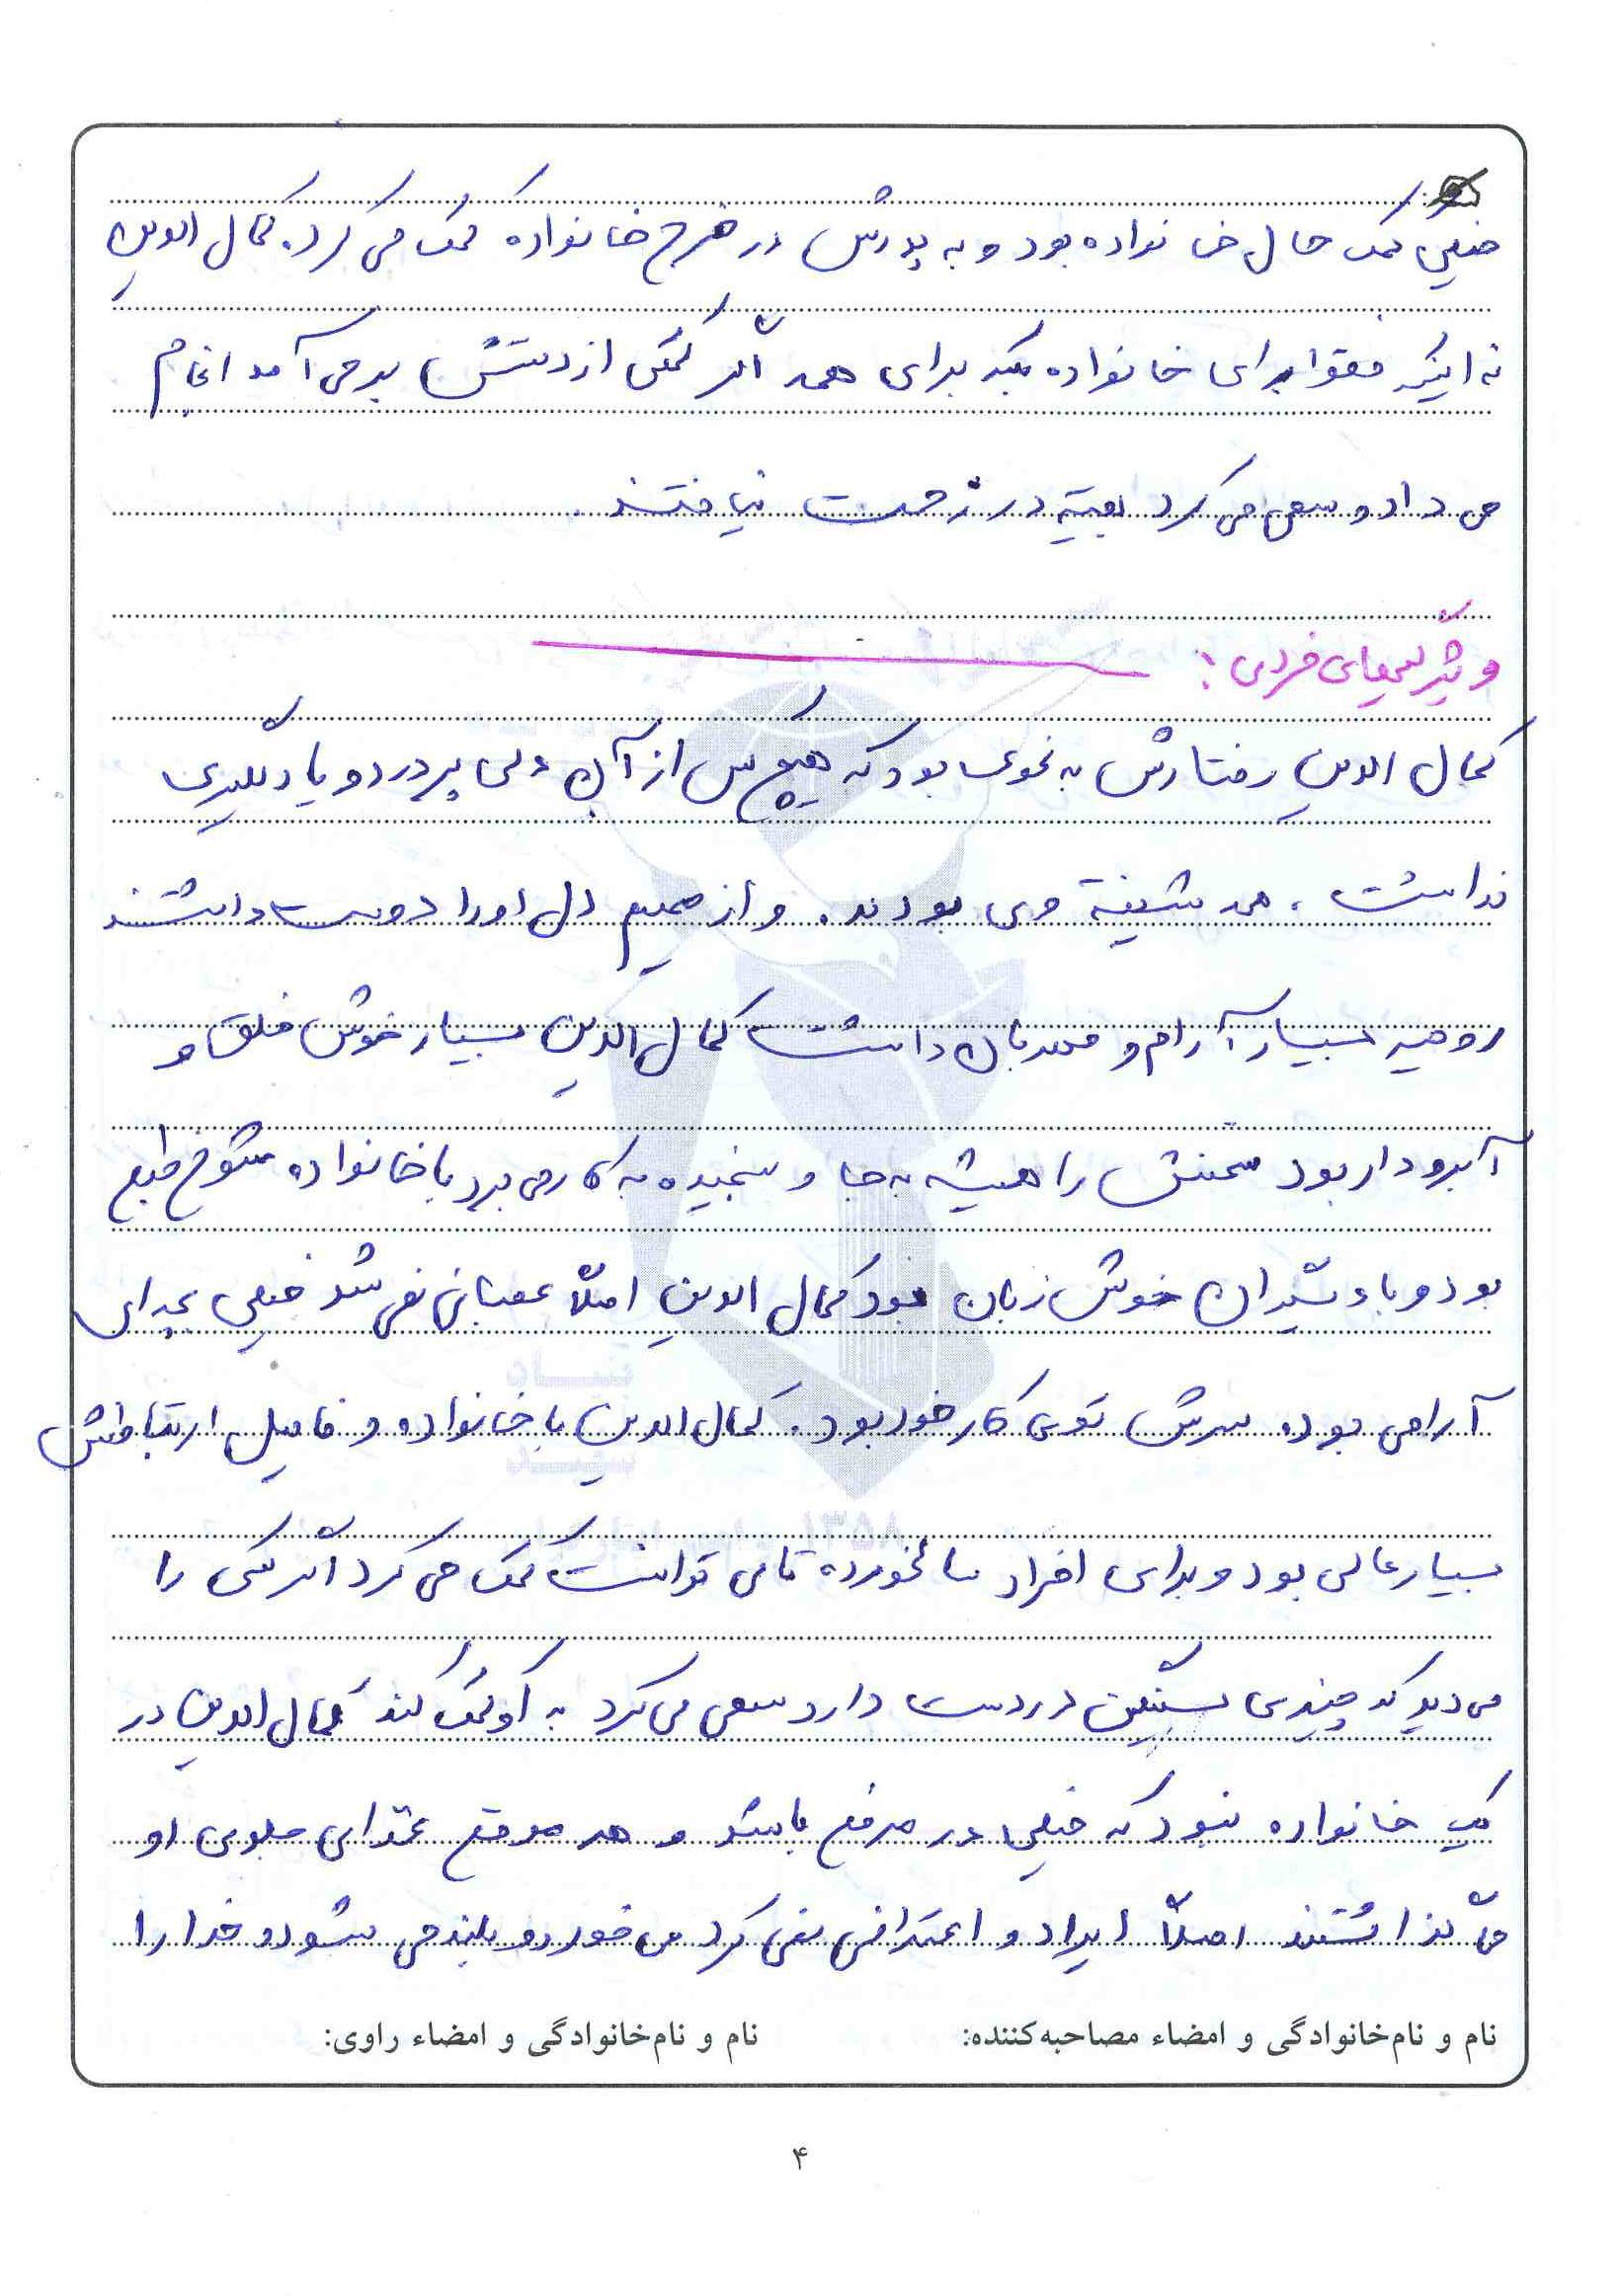 خیلی کمک حال خانواده بود و به پدرش در خرج خانواده کمک می کرد. کمال الدین
نه اینکه فقط برای خانواده بلکه برای همه اگر کمکی از دستش بر می آمد انجام
می داد و سعی می کرد بقیه در زحمت نیافتند.
ویژگیهای فردی:
کمال الدین رفتارش به نحوی بود که هیچ کس از آن دلی پر درد و یا دلگیری
نداشت. همه شیفته وی بودند. و از صمیم دل او را دوست داشتند
روحیه بسیار آرام و مهربان داشت کمال الدین بسیار خوش خلق و
آبرودار بود سخنش را همیشه به جا و سنجیده به کار می برد با خانواده شوخ طبع
بود و با دیگران خوش زبان بود کمال الدین اصلاً عصبانی نمی شد خیلی بچه ای
آرامی بوده سرش توی کار خود بود. کمال الدین با خانواده و فامیل ارتباطش
بسیار عالی بود و برای افراد سالخورده تا می توانست کمک می کرد اگر کسی را
می دید که چیزی سنگین در دست دارد سعی می کرد به او کمک کند کمال الدین در
یک خانواده نبود که خیلی در مرفح باشد و هر موقع غذای جلوی او
می گذاشتند اصلاً ایراد و اعتراضی نمی کرد می خورد و بلند می شود و خدا را
نام و نام‌خانوادگی و امضاء مصاحبه‌کننده: نام و نام‌خانوادگی و امضاء راوی:
۴